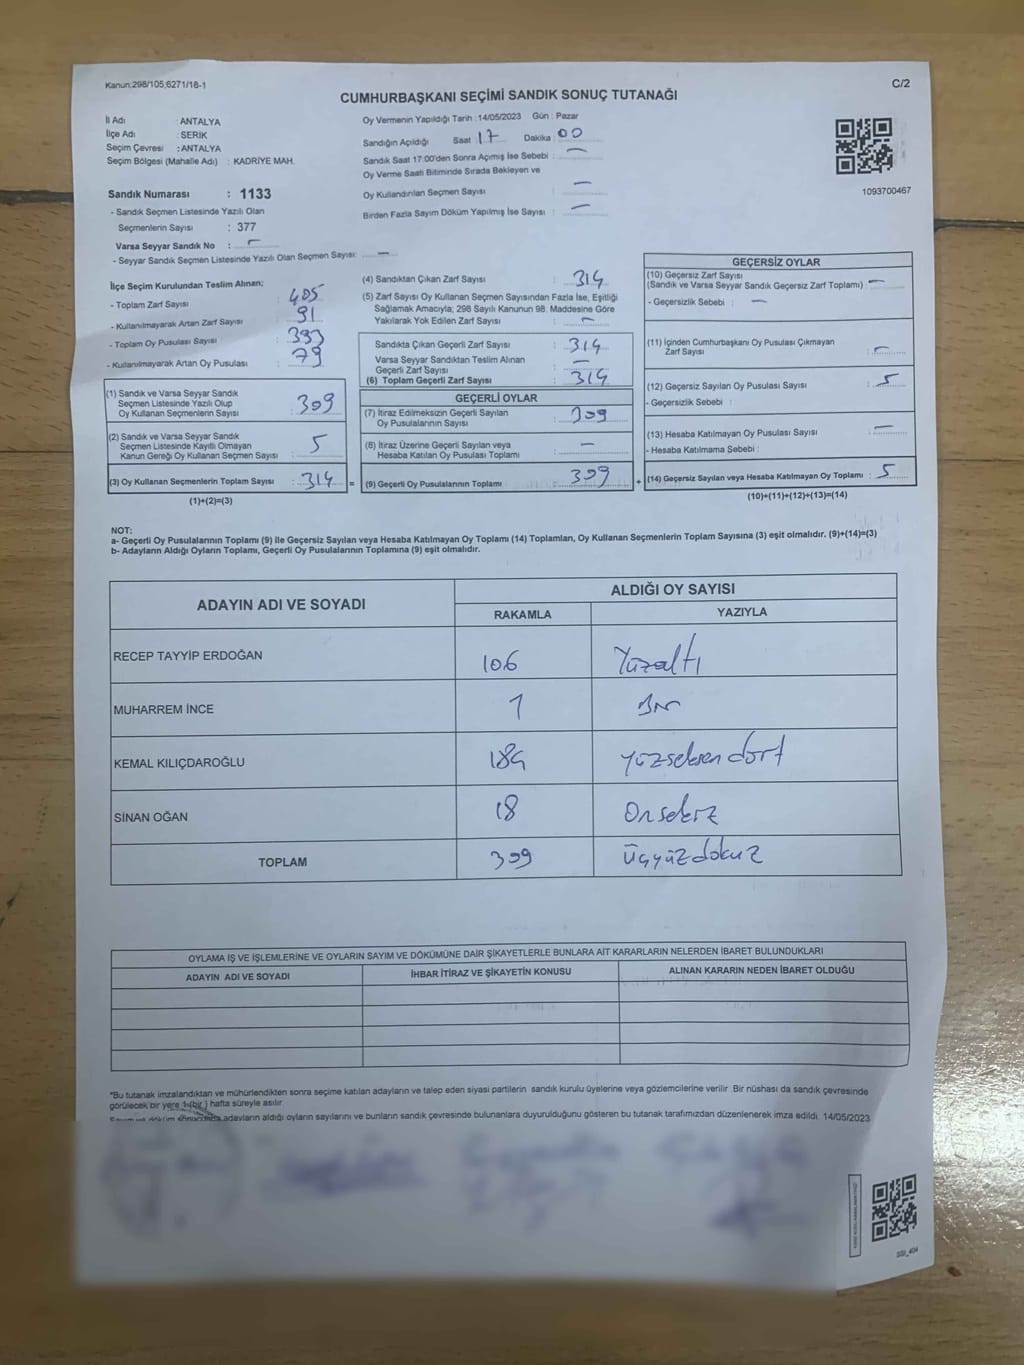 Kanun:298/105;6271/18-1
C/2
CUMHURBAŞKANI SEÇİMİ SANDIK SONUÇ TUTANAĞI
İl Adı : ANTALYA
İlçe Adı : SERİK
Seçim Çevresi : ANTALYA
Seçim Bölgesi (Mahalle Adı) : KADRİYE MAH.
Sandık Numarası : 1133
- Sandık Seçmen Listesinde Yazılı Olan
Seçmenlerin Sayısı : 377
Varsa Seyyar Sandık No : -
- Seyyar Sandık Seçmen Listesinde Yazılı Olan Seçmen Sayısı: -
Oy Vermenin Yapıldığı Tarih : 14/05/2023 Gün : Pazar
Sandığın Açıldığı Saat 17 Dakika : 00
Sandık Saat 17:00'den Sonra Açımış İse Sebebi : -
Oy Verme Saati Bitiminde Sırada Bekleyen ve
Oy Kullandırılan Seçmen Sayısı : -
Birden Fazla Sayım Döküm Yapılmış İse Sayısı : -
1093700467
İlçe Seçim Kurulundan Teslim Alınan;
- Toplam Zarf Sayısı : 405
- Kullanılmayarak Artan Zarf Sayısı : 91
- Toplam Oy Pusulası Sayısı : 393
- Kullanılmayarak Artan Oy Pusulası : 79
(1) Sandık ve Varsa Seyyar Sandık
Seçmen Listesinde Yazılı Olup
Oy Kullanan Seçmenlerin Sayısı : 309
(2) Sandık ve Varsa Seyyar Sandık
Seçmen Listesinde Kayıtlı Olmayan
Kanun Gereği Oy Kullanan Seçmen Sayısı : 5
(3) Oy Kullanan Seçmenlerin Toplam Sayısı : 314 =
(1)+(2)=(3)
(4) Sandıktan Çıkan Zarf Sayısı : 314
(5) Zarf Sayısı Oy Kullanan Seçmen Sayısından Fazla İse, Eşitliği
Sağlamak Amacıyla; 298 Sayılı Kanunun 98. Maddesine Göre
Yakılarak Yok Edilen Zarf Sayısı : -
Sandıkta Çıkan Geçerli Zarf Sayısı : 314
Varsa Seyyar Sandıktan Teslim Alınan
Geçerli Zarf Sayısı : -
(6) Toplam Geçerli Zarf Sayısı : 314
GEÇERLİ OYLAR
(7) İtiraz Edilmeksizin Geçerli Sayılan
Oy Pusulalarının Sayısı : 309
(8) İtiraz Üzerine Geçerli Sayılan veya
Hesaba Katılan Oy Pusulası Toplamı : -
(9) Geçerli Oy Pusulalarının Toplamı : 309 +
GEÇERSİZ OYLAR
(10) Geçersiz Zarf Sayısı
(Sandık ve Varsa Seyyar Sandık Geçersiz Zarf Toplamı) : -
- Geçersizlik Sebebi : -
(11) İçinden Cumhurbaşkanı Oy Pusulası Çıkmayan
Zarf Sayısı : -
(12) Geçersiz Sayılan Oy Pusulası Sayısı : 5
- Geçersizlik Sebebi :
(13) Hesaba Katılmayan Oy Pusulası Sayısı : -
- Hesaba Katılmama Sebebi :
(14) Geçersiz Sayılan veya Hesaba Katılmayan Oy Toplamı : 5
(10)+(11)+(12)+(13)=(14)
NOT:
a- Geçerli Oy Pusulalarının Toplamı (9) ile Geçersiz Sayılan veya Hesaba Katılmayan Oy Toplamı (14) Toplamları, Oy Kullanan Seçmenlerin Toplam Sayısına (3) eşit olmalıdır. (9)+(14)=(3)
b- Adayların Aldığı Oyların Toplamı, Geçerli Oy Pusulalarının Toplamına (9) eşit olmalıdır.
ADAYIN ADI VE SOYADI ALDIĞI OY SAYISI
RAKAMLA YAZIYLA
RECEP TAYYİP ERDOĞAN 106 Yüzaltı
MUHARREM İNCE 1 Bir
KEMAL KILIÇDAROĞLU 184 Yüzseksendört
SİNAN OĞAN 18 Onsekiz
TOPLAM 309 Üçyüzdokuz
OYLAMA İŞ VE İŞLEMLERİNE VE OYLARIN SAYIM VE DÖKÜMÜNE DAİR ŞİKAYETLERLE BUNLARA AİT KARARLARIN NELERDEN İBARET BULUNDUKLARI
ADAYIN ADI VE SOYADI İHBAR İTİRAZ VE ŞİKAYETİN KONUSU ALINAN KARARIN NEDEN İBARET OLDUĞU
*Bu tutanak imzalandıktan ve mühürlendikten sonra seçime katılan adayların ve talep eden siyasi partilerin sandık kurulu üyelerine veya gözlemcilerine verilir Bir nüshası da sandık çevresinde
görülecek bir yere 1 (bir ) hafta süreyle asılır.
adayların aldığı oyların sayılarını ve bunların sandık çevresinde bulunanlara duyurulduğunu gösteren bu tutanak tarafımızdan düzenlenerek imza edildi. 14/05/2023